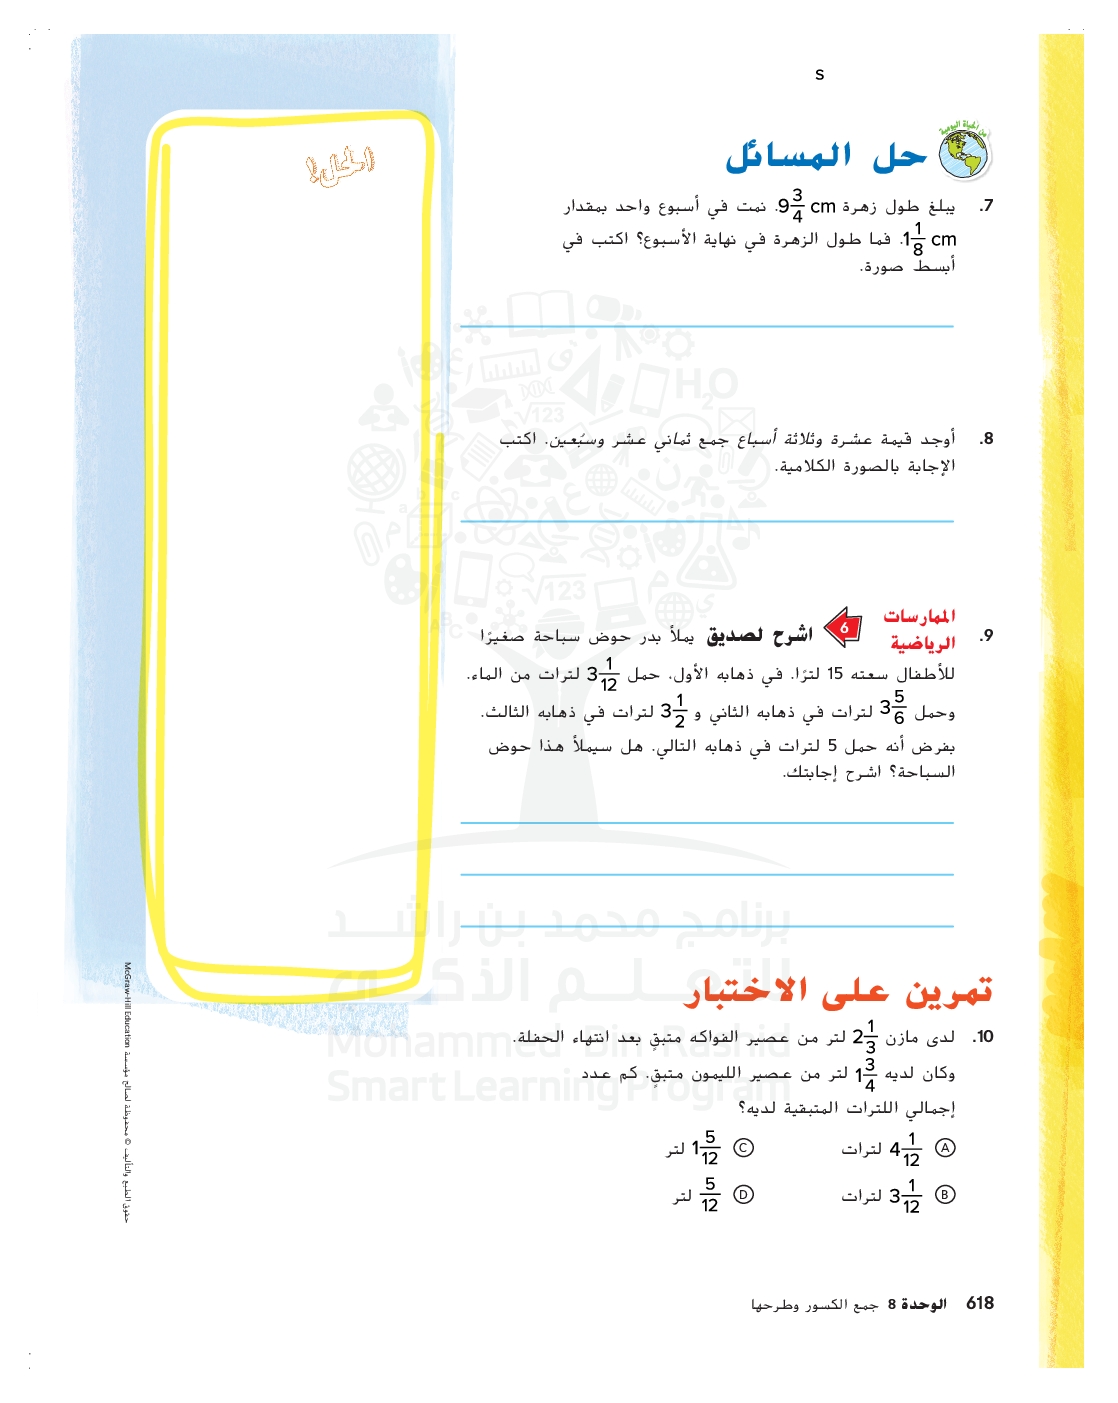 s
من الحياة اليومية
حل المسائل
الحل!
7. يبلغ طول زهرة 9 3/4 cm. نمت في أسبوع واحد بمقدار
1 1/8 cm. فما طول الزهرة في نهاية الأسبوع؟ اكتب في
أبسط صورة.
8. أوجد قيمة عشرة وثلاثة أسباع جمع ثماني عشر وسبُعين. اكتب
الإجابة بالصورة الكلامية.
الممارسات
الرياضية
9. 6 اشرح لصديق يملأ بدر حوض سباحة صغيرًا
للأطفال سعته 15 لترًا. في ذهابه الأول، حمل 3 1/12 لترات من الماء.
وحمل 3 5/6 لترات في ذهابه الثاني و 3 1/2 لترات في ذهابه الثالث.
بفرض أنه حمل 5 لترات في ذهابه التالي. هل سيملأ هذا حوض
السباحة؟ اشرح إجابتك.
برنامج محمد بن راشد
للتعلم الذكي
Mohammed Bin Rashid
Smart Learning Program
تمرين على الاختبار
10. لدى مازن 2 1/3 لتر من عصير الفواكه متبقٍ بعد انتهاء الحفلة.
وكان لديه 1 3/4 لتر من عصير الليمون متبقٍ. كم عدد
إجمالي اللترات المتبقية لديه؟
A 4 1/12 لترات C 1 5/12 لتر
B 3 1/12 لترات D 5/12 لتر
618 الوحدة 8 جمع الكسور وطرحها
حقوق الطبع والتأليف © محفوظة لصالح مؤسسة McGraw-Hill Education